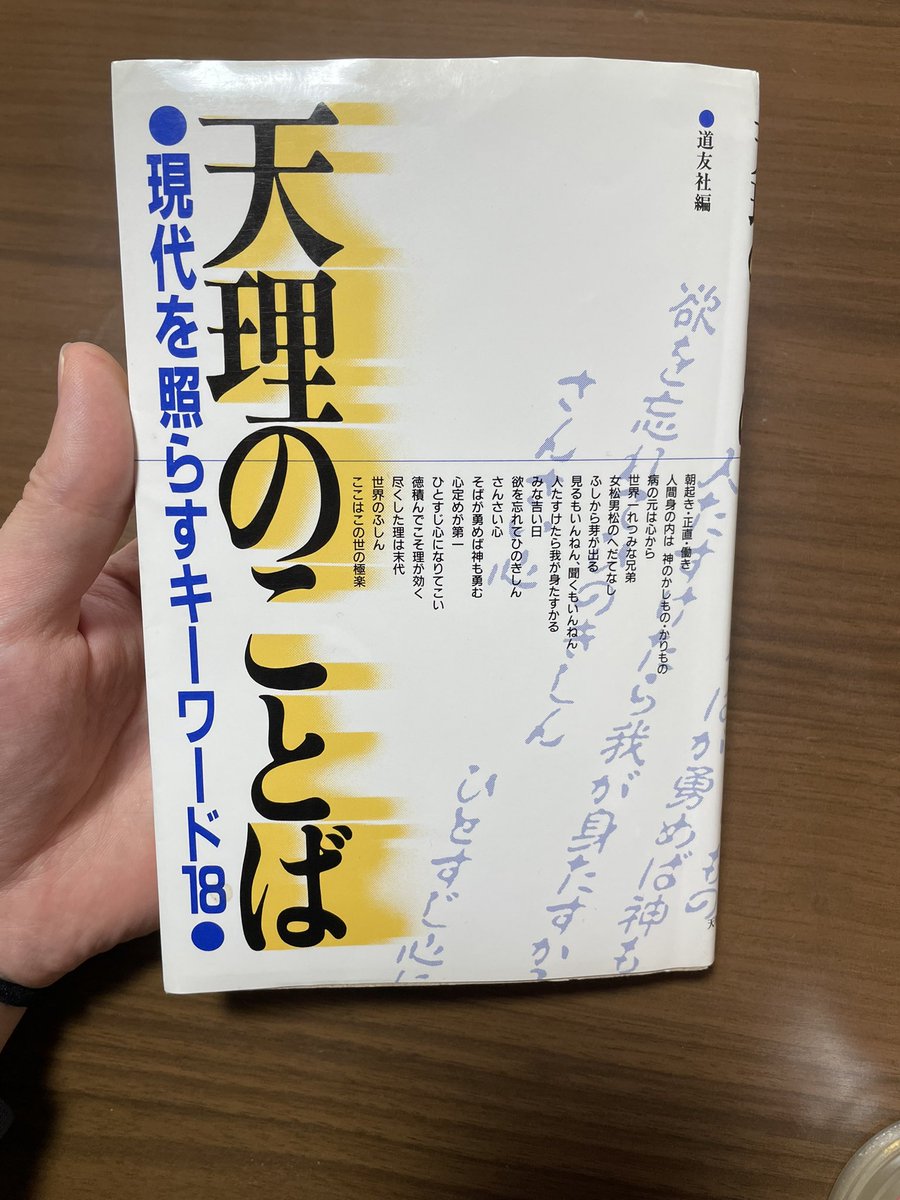 ●道友社編
天理のことば
●現代を照らすキーワード18●
朝起き・正直・働き
人間身の内は 神のかしもの・かりもの
病の元は心から
世界一れつみな兄弟
女松男松のへだてなし
ふしから芽が出る
見るもいんねん、聞くもいんねん
人たすけたら我が身たすかる
みな吉い日
欲を忘れてひのきしん
さんさい心
そばが勇めば神も勇む
心定めが第一
ひとすじ心になりてこい
徳積んでこそ理が効く
尽くした理は末代
世界のふしん
ここはこの世の極楽
欲を忘れ
のきしん
さんさい心
人たすけたら我が身たすか
ばが勇めば神も
もの
ひとすじ心に